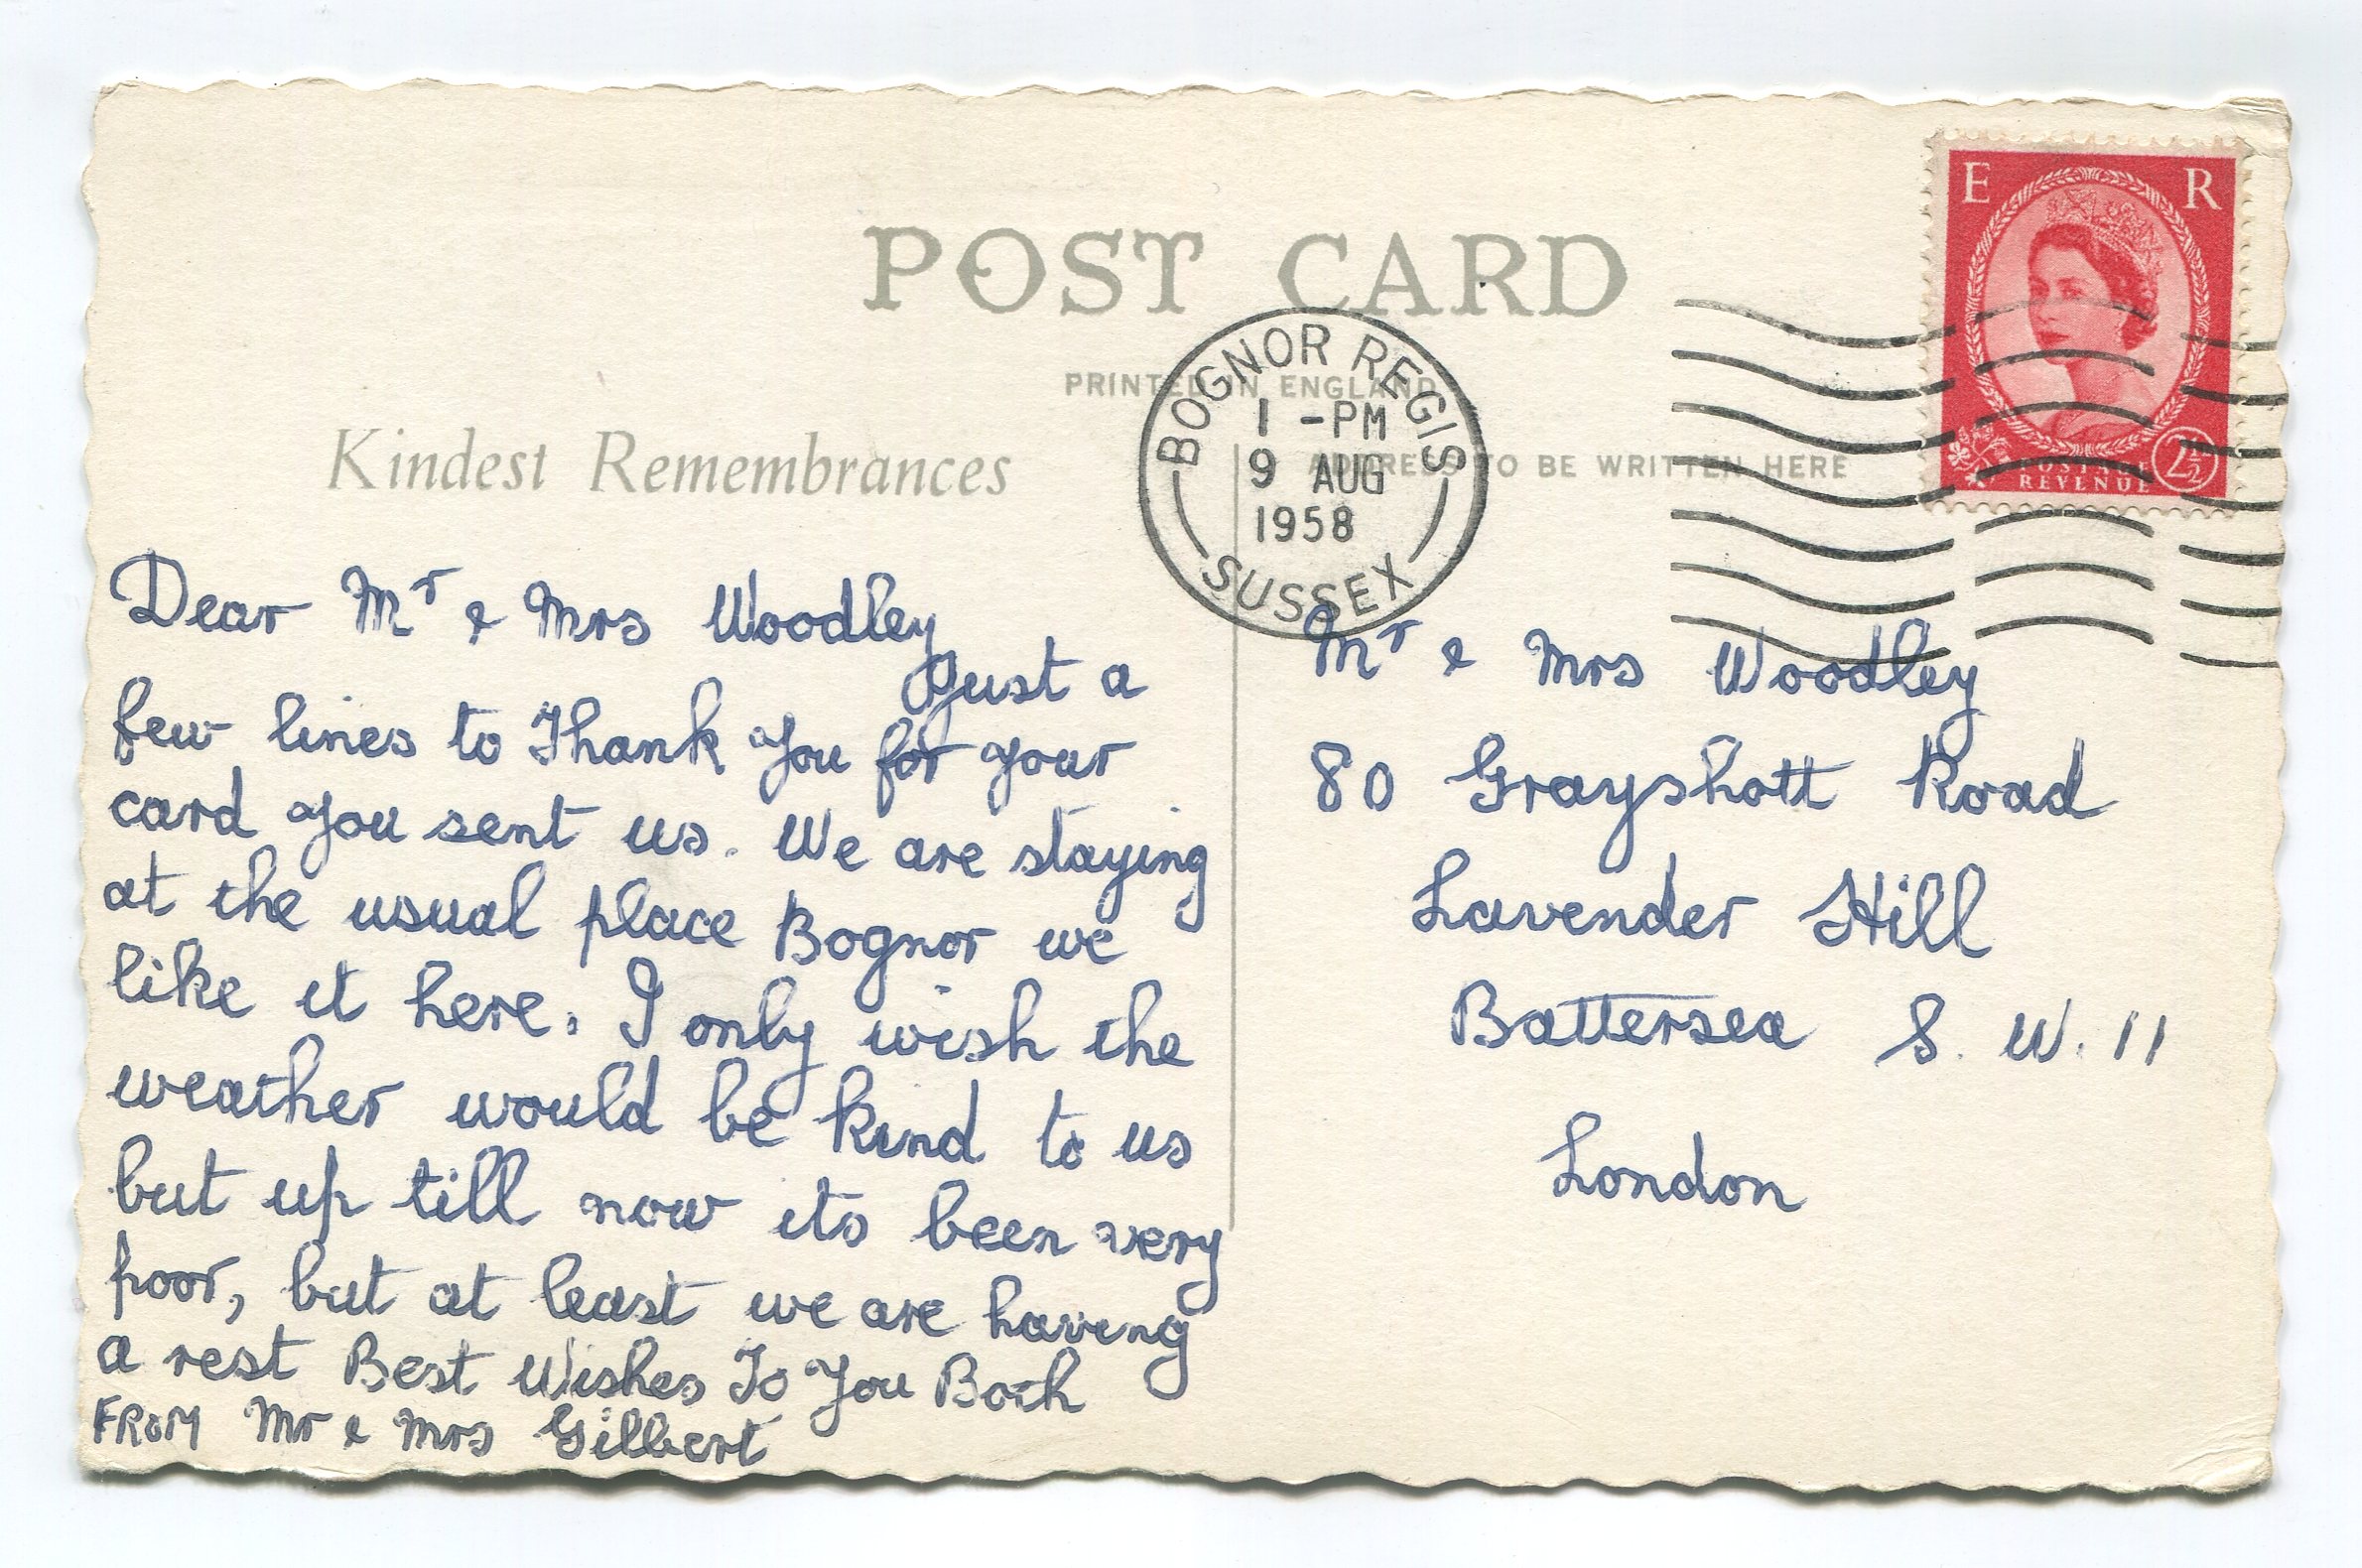 POST CARD
PRINTED IN ENGLAND
Kindest Remembrances
ADDRESS TO BE WRITTEN HERE
E R
POSTAGE
REVENUE
2½
BOGNOR REGIS
1 - PM
9 AUG
1958
SUSSEX
Dear Mr & Mrs Woodley
Just a
few lines to Thank You for your
card you sent us. We are staying
at the usual place Bognor we
like it here. I only wish the
weather would be kind to us
but up till now its been very
poor, but at least we are having
a rest Best Wishes To You Both
FROM Mr & Mrs Gilbert
Mr & Mrs Woodley
80 Grayshott Road
Lavender Hill
Battersea S. W. 11
London